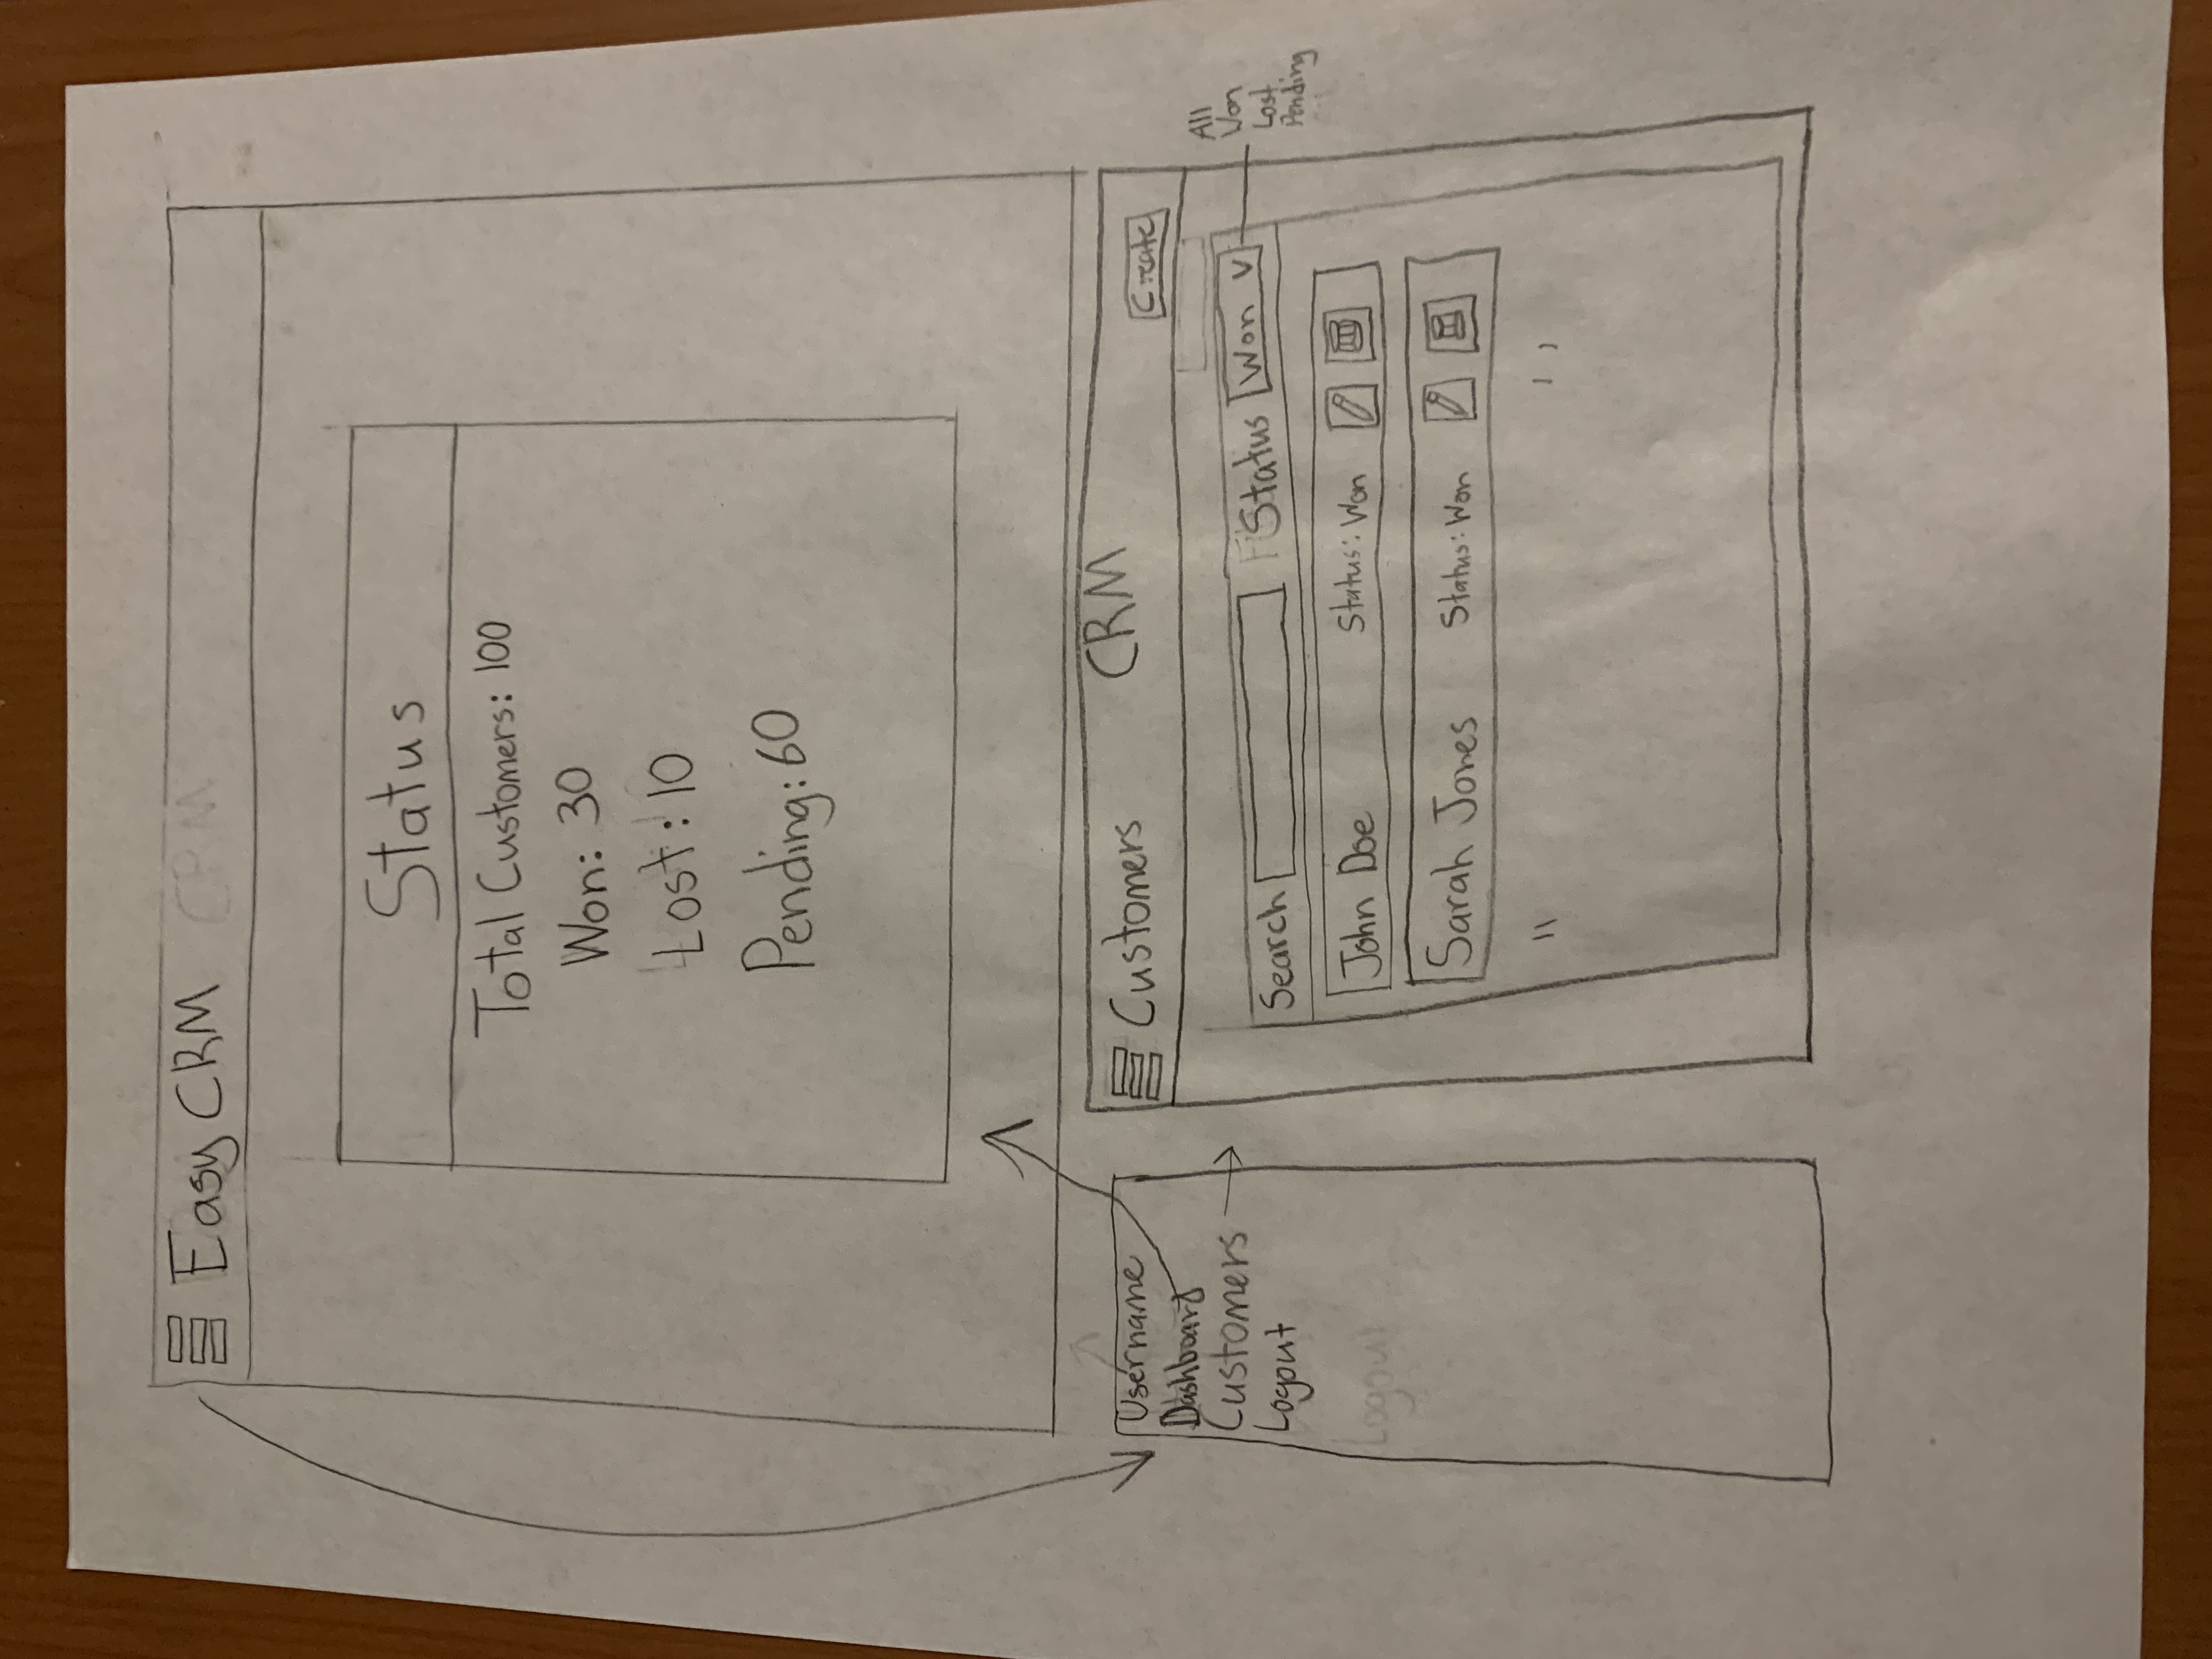 Easy CRM
Status
Total Customers: 100
Won: 30
Lost: 10
Pending: 60
Username
Dashboard
Customers
Logout
Logout
Customers CRM Create
Search Status Won v
All
Won
Lost
Pending
John Doe Status: Won
Sarah Jones Status: Won